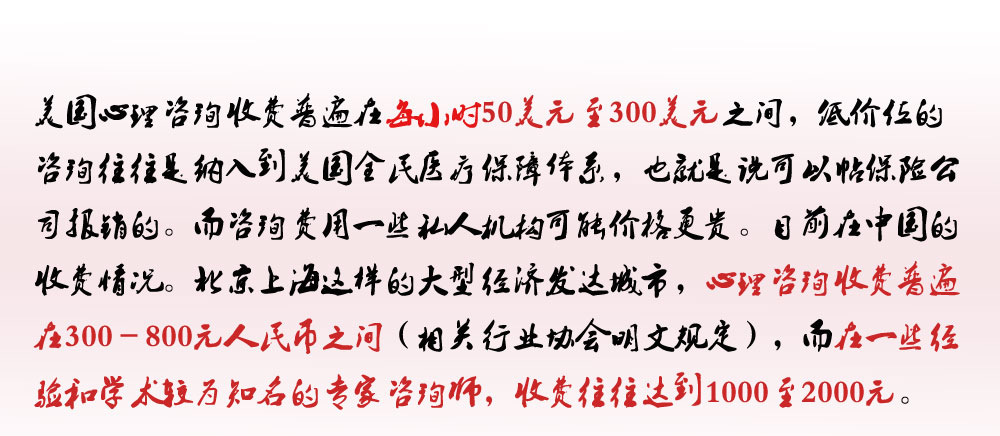 美国心理咨询收费普遍在每小时50美元至300美元之间，低价位的
咨询往往是纳入到美国全民医疗保障体系，也就是说可以帖保险公
司报销的。而咨询费用一些私人机构可能价格更贵。目前在中国的
收费情况。北京上海这样的大型经济发达城市，心理咨询收费普遍
在300－800元人民币之间（相关行业协会明文规定），而在一些经
验和学术较为知名的专家咨询师，收费往往达到1000至2000元。